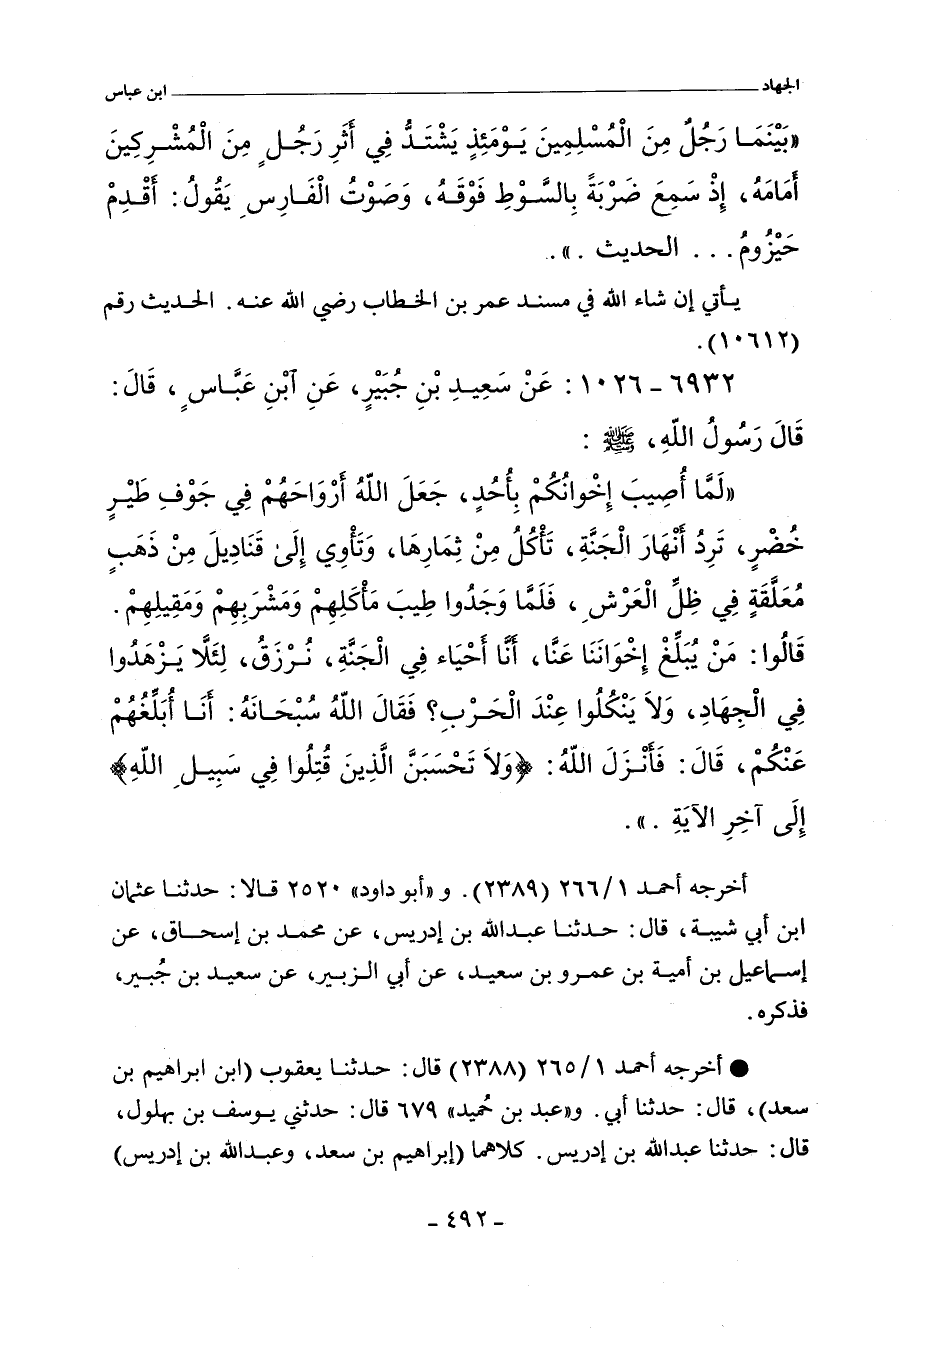 الجهاد ابن عباس
«بَيْنَمَا رَجُلٌ مِنَ الْمُسْلِمِينَ يَوْمَئِذٍ يَشْتَدُّ فِي أَثَرِ رَجُلٍ مِنَ الْمُشْرِكِينَ
أَمَامَهُ، إِذْ سَمِعَ ضَرْبَةً بِالسَّوْطِ فَوْقَهُ، وَصَوْتُ الْفَارِسِ يَقُولُ: أَقْدِمْ
حَيْزُومُ... الحديث.».
يأتي إن شاء الله في مسند عمر بن الخطاب رضي الله عنه. الحديث رقم
(١٠٦١٢).
٦٩٣٢ - ١٠٢٦: عَنْ سَعِيدِ بْنِ جُبَيْرٍ، عَنِ آبْنِ عَبَّاسٍ، قَالَ:
قَالَ رَسُولُ اللَّهِ، ﷺ:
«لَمَّا أُصِيبَ إِخْوَانُكُمْ بِأُحُدٍ، جَعَلَ اللَّهُ أَرْوَاحَهُمْ فِي جَوْفِ طَيْرٍ
خُضْرٍ، تَرِدُ أَنْهَارَ الْجَنَّةِ، تَأْكُلُ مِنْ ثِمَارِهَا، وَتَأْوِي إِلَىٰ قَنَادِيلَ مِنْ ذَهَبٍ
مُعَلَّقَةٍ فِي ظِلِّ الْعَرْشِ، فَلَمَّا وَجَدُوا طِيبَ مَأْكَلِهِمْ وَمَشْرَبِهِمْ وَمَقِيلِهِمْ.
قَالُوا: مَنْ يُبَلِّغْ إِخْوَانَنَا عَنَّا، أَنَّا أَحْيَاء فِي الْجَنَّةِ، نُرْزَقُ، لِئَلَّا يَزْهَدُوا
فِي الْجِهَادِ، وَلَا يَنْكُلُوا عِنْدَ الْحَرْبِ؟ فَقَالَ اللَّهُ سُبْحَانَهُ: أَنَا أُبَلِّغُهُمْ
عَنْكُمْ، قَالَ: فَأَنْزَلَ اللَّهُ: ﴿وَلَا تَحْسَبَنَّ الَّذِينَ قُتِلُوا فِي سَبِيلِ اللَّهِ﴾
إِلَى آخِرِ الآيَةِ.».
أخرجه أحمد ٢٦٦/١ (٢٣٨٩). و «أبو داود» ٢٥٢٠ قالا: حدثنا عثمان
ابن أبي شيبة، قال: حدثنا عبدالله بن إدريس، عن محمد بن إسحاق، عن
إسماعيل بن أمية بن عمرو بن سعيد، عن أبي الزبير، عن سعيد بن جُبير،
فذكره.
● أخرجه أحمد ٢٦٥/١ (٢٣٨٨) قال: حدثنا يعقوب (ابن ابراهيم بن
سعد)، قال: حدثنا أبي. و«عبد بن حُميد» ٦٧٩ قال: حدثني يوسف بن بهلول،
قال: حدثنا عبدالله بن إدريس. كلاهما (إبراهيم بن سعد، وعبدالله بن إدريس)
- ٤٩٢ -